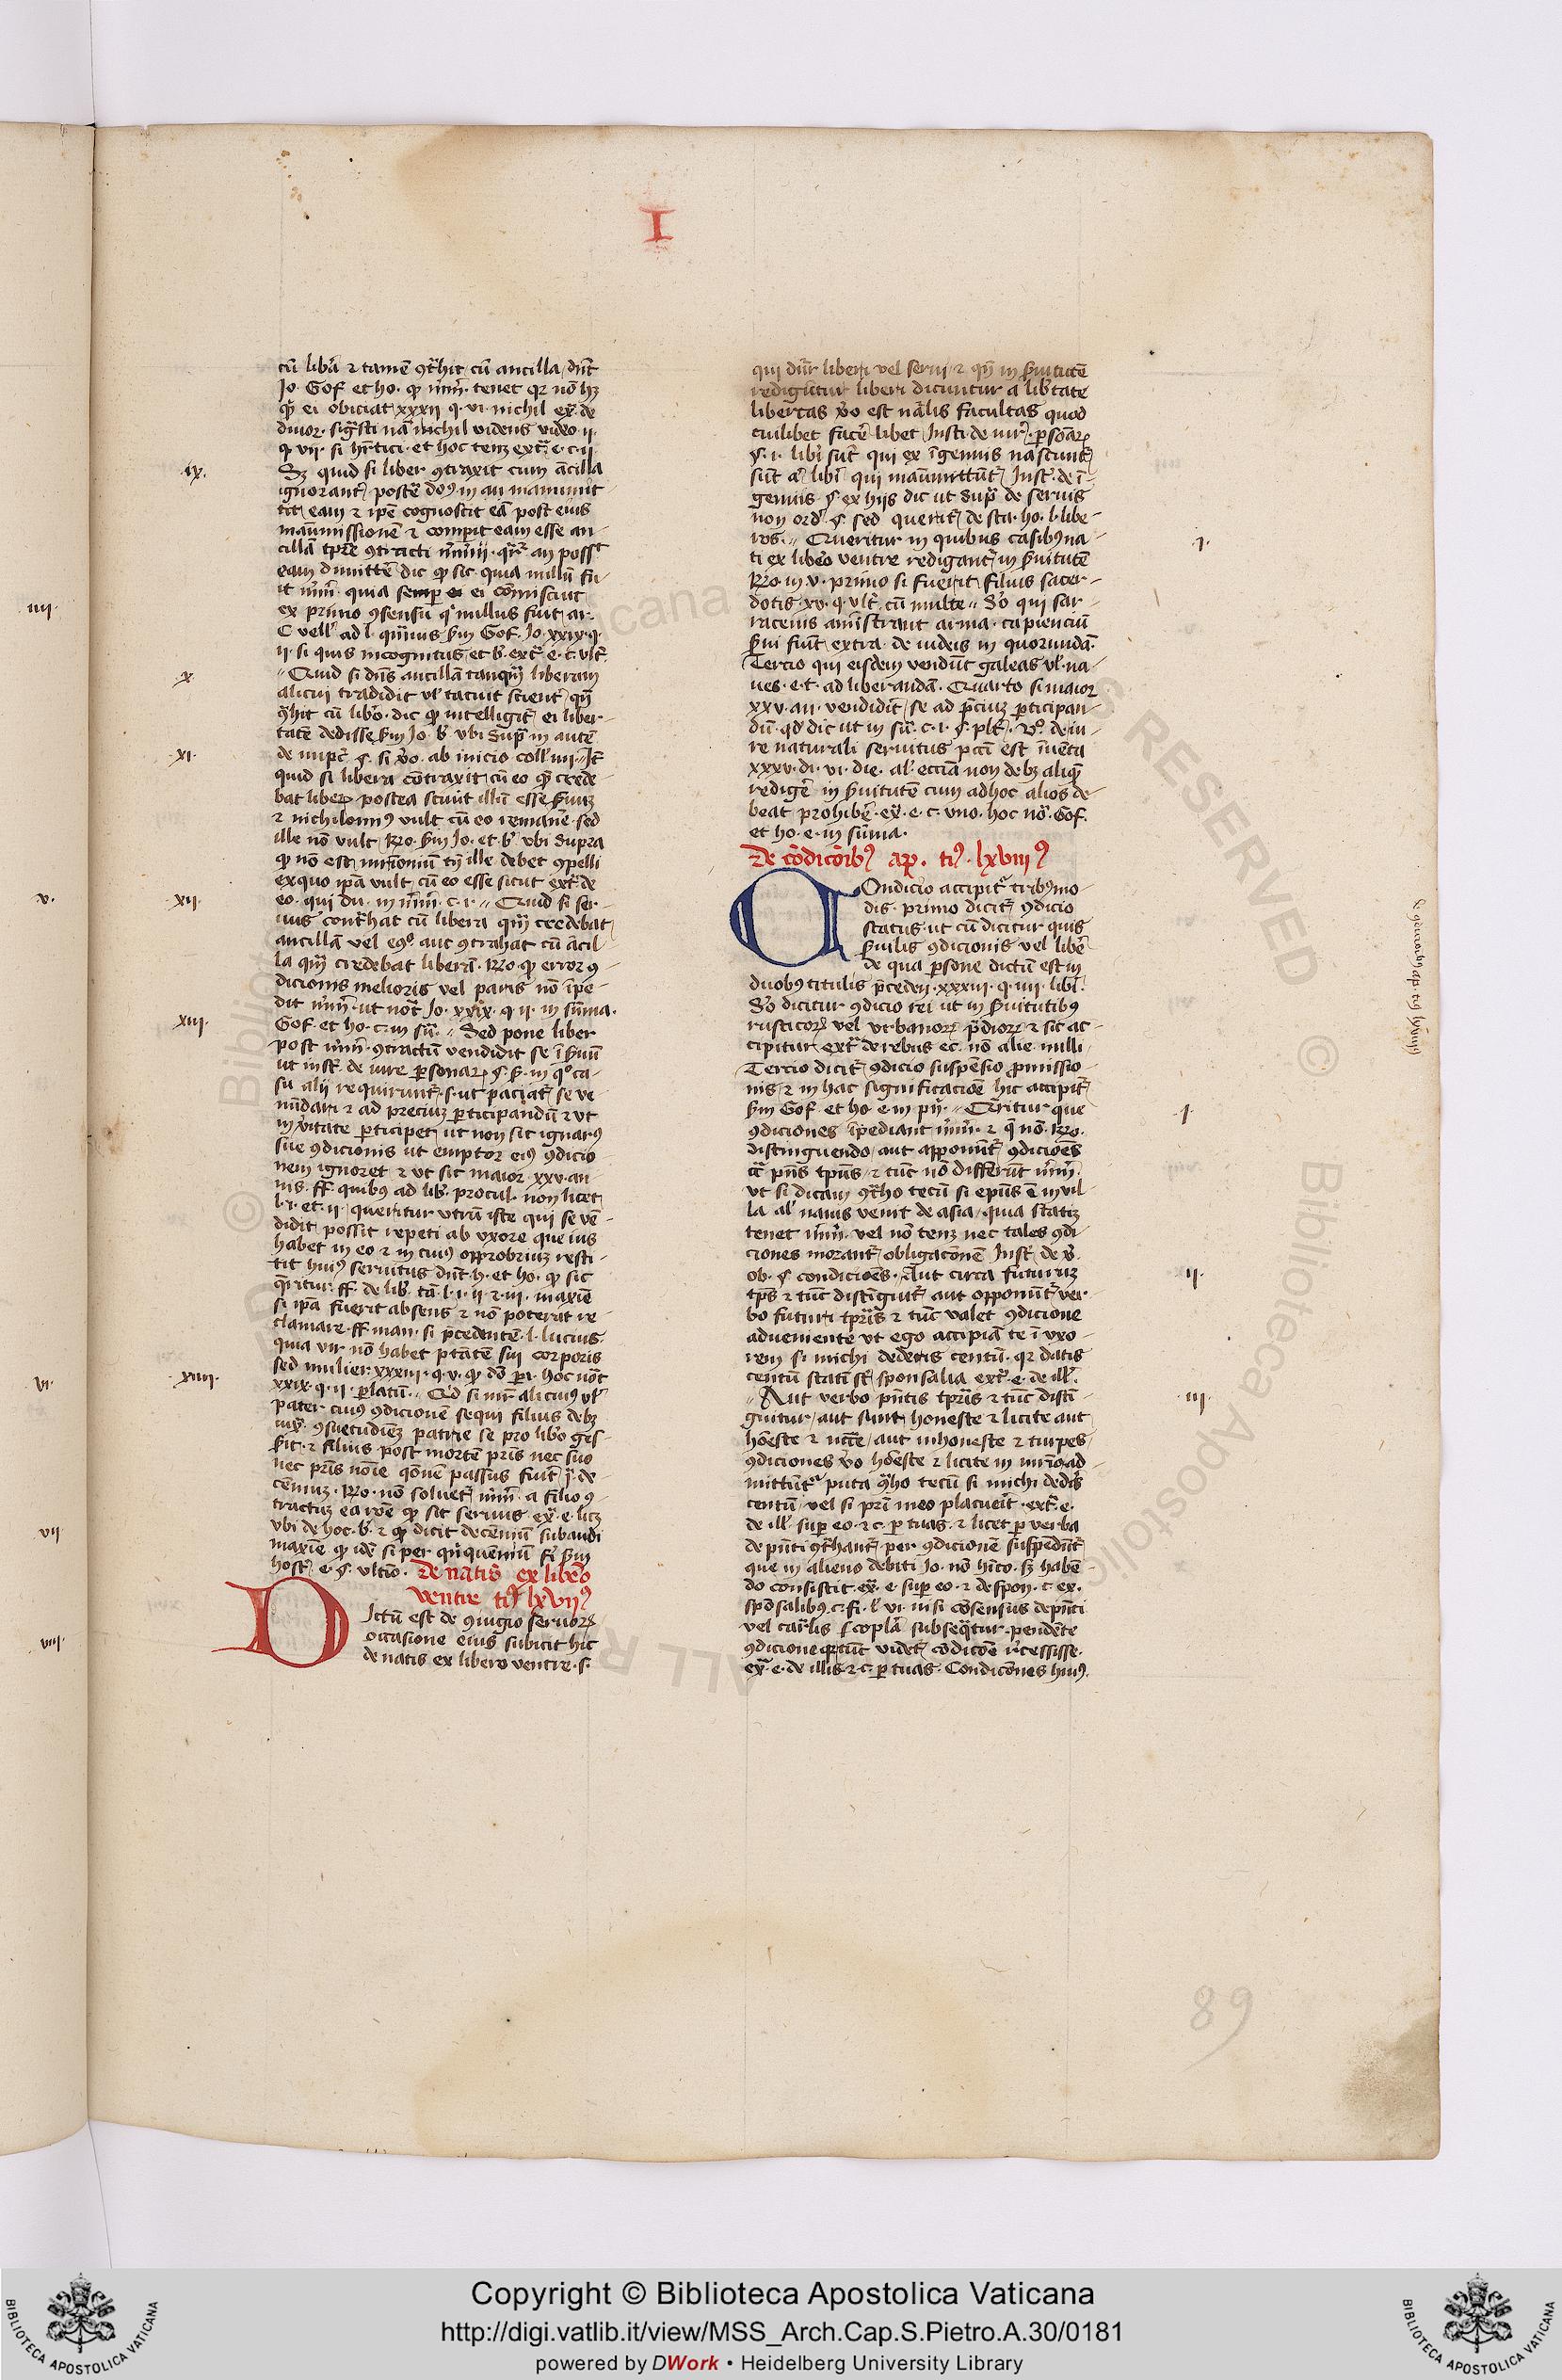 I
cū libā ⁊ tamē ꝯtͬhit cū ancilla dn̄t
Jo. Gof. et ho. ꝙ mr̄m̄. tenet qꝛ nō hꝫ
ei obiciat xxxii q. vi. nichil ex̄. de
diuor. sigͣsti nā nichil videns video ii.
q. vii. si hr̄tici. et hoc tenꝫ extͣ. e. c. ii.
ix.
Sꝫ quid si liber ꝯtraxit cum ācilla
ignorantͬ postͤ dn̄s in an manumit
tit eam ⁊ ip̄e cognoscit eā post eius
manumissionē ⁊ comperit eam esse an
cillā tp̄re ꝯtracti mr̄m̄ii. qͬr̄ an possꝫ
eam dimittē dic ꝙ sic quia nullū fu
it mr̄m̄. quia semper ei cōmisciut
ex primo ꝯsensu qͥ nullus fuit ar.
C vell' ad l. qm̄ius ẜm Gof. Jo. xxix. q.
ii. si quis incognitus et b̄. extͣ. e. c. vlt̄.
x.
Quid si dn̄s ancillā tanqͣꝫ liberam
alicui tradidit vl' tacuit scient qn̄
ꝯͬhit cū libo. dic ꝙ intelligitͬ ei liber-
tatē dedisse ẜm Jo. b̄ vbi supͣ in autē
xi.
de nupt̄. ¶ si v̄o. ab inicio coll' iiii. Jt̄
quid si libera cōtraxit cū eo qͣꝫ crede-
bat liberꝫ postea sciuit illū esse ẜuuꝫ
⁊ nichilominꝰ vult cū eo remanē sed
ille nō vult Rͦ. ẜm Jo. et b̄ vbi supra
ꝙ nō est mr̄imoniū tn̄ ille debet ꝯpelli
exquo ip̄a vult cū eo esse sicut extͣ de
xii.
eo. qui du. in mr̄m̄. c. i. Quid si ser-
uus contͬhat cū libera qͣꝫ credebat
ancillā vel eꝯͦ. aut ꝯtrahat cū ācil-
la qͣꝫ credebat liberā. Rͦ. ꝙ error ꝯ-
dicionis melioris vel paris nō īpe-
dit mr̄m̄. ut nōt Jo. xxix. q. ii. in sūma.
xiii.
Gof. et ho. c. in sū. Sed pone liber
post mr̄m̄. ꝯtractū vendidit se ī ẜuū
ut inst̄. de iure personaꝝ ¶ ẜ. in qͦ ca-
su alii requiruntͬ. s. ut paciatͬ se ve
nūdari ⁊ ad preciuꝫ ꝑticipandū ⁊ ut
in v̄itate ꝑticipet ut non sit ignarꝰ
sue ꝯdicionis ut emptor eiꝰ ꝯdicio
nem ignoret ⁊ ut sit maior xxv. an-
nis. ff. quibꝰ ad lib̄. procul. non licet
l. i. et. ii. queritur vtrū iste qui se vē-
didit possit repeti ab vxore que ius
habet in eo ⁊ in cuiꝰ opprobriuꝫ resti-
tit huiꝰ seruitus dn̄t h. et ho. ꝙ sic
qͣritur. ff. de lib̄. cā. l. i. ii ⁊. iii. maxīe
si ip̄a fuerit absens ⁊ nō poterat re
clamare. ff. man. si p̄cedentē. l. lucius.
quia vir nō habet ptātē sui corporis
sed mulier xxxiii. q. v. ꝙ dō pͣi. hoc nōt
xiiii.
xxix. q. ii. ꝑlatū. Qͥd si mr̄ alicuiꝰ vl'
pater cuiꝰ ꝯdicionē sequi filius debꝫ
iuxͣ. ꝯsuetudiez patrie se pro libo ges-
sit. ⁊ filius post mortē pr̄is nec suo
nec pr̄is noīe qōnē passus fuit qͣ. de-
cēniuꝫ. Rͦ. nō soluetͬ mr̄m̄. a filio ꝯ-
tractuꝫ ea rōe ꝙ sit seruus ex̄. e. licꝫ
vbi de hoc. b̄. ⁊ ꝙ dicit decēniū subaudi
maxīe ꝙ idē si per quīquēniū fū̄ ẜm
host. e. ¶. vltio. De natis ex libero
ventre tiꝰ lxviiꝰ
Dictū est de ꝯiugio seruoꝝ
occasione eiꝰ subicit hic
de natis ex libero ventre. s.
qui dn̄r liberi vel serui ⁊ qn̄ in ẜuitutē
rediguntur liberi dicuntur a libtate
libertas v̄o est nāłis facultas quod
cuilibet facē libet Insti. de iurͬ. ꝑsonaꝝ
¶. i. libi sūt qui ex īgenuis nascuntͬ
sūt ecͣ libi qui manumittūtͬ Inst̄. de ī-
genuis ¶ ex hiis dic ut supͣ de seruis
non ord' ¶ sed queritͬ de sta. ho. l. libe-
i.
ros. Queritur in quibus casibꝰ na-
ti ex libeo ventre redigantͬ in ẜuitutē
Rͦ. in v. primo si fuerit filius sacer-
dotis. xv. q. vlt̄. cū multe. Sͦ qui sar-
racenis aministrant arma. capienciū
ẜui fiūt extra. de iudeis in quorundā.
Tercio qui eisdem vendūt galeas vl' na-
ues. e. t. ad liberandā. Quarto si maior
xxv. an. vendidit se ad p̄ciuꝫ ꝑticipan-
dū. qd' dic ut in sū. c. i. ¶. plt̄. Vͦ. de iu-
re naturali seruitus pccī est īuēta
xxxv. di. vi. die. al'. ecciā non debꝫ aliqͣꝫ
redigē in ẜuitutē cum adhoc alios de-
beat prohibē. ex̄. e. c. vno. hoc nōͣ. Gof.
et ho. e. in sūma.
De cōdicoibꝰ ap. tiꝰ. lxviiiꝰ
COndicio accipitͬ tribꝰ mo-
dis. primo dicitͬ ꝯdicio
status. ut cū dicitur quis
ẜuilis ꝯdicionis vel libē
de qua ꝑsone dictū est in
duobꝰ titulis p̄ceden. xxxiii. q. iiii. libi.
Sͦo dicitur ꝯdicio rei ut in ẜuitutibꝰ
rusticoꝝ vel vrbanoꝝ p̄dioꝝ ⁊ sic ac-
cipitur extͣ de rebus ec. nō alie. nulli
Tercio dicitͬ ꝯdicio suspēsio ꝓmissio-
nis ⁊ in hac significacioē hic accipitͬ
i.
ẜm Gof. et ho e. in pͥn̄. Qͬritur que
ꝯdiciones īpediant mr̄m̄. ⁊ qͥ nō. Rͦ.
distinguendo aut apponūtͬ ꝯdicioēs
cͣ pn̄s tp̄us ⁊ tūc nō differūt mr̄m̄.
ut si dicam ꝯͬho tecū si ep̄us ē in vil-
la al' nauis venit de asia quia statiꝫ
tenet mr̄m̄. vel nō tenꝫ nec tales ꝯdi-
ciones morantͬ obligacōnē Inst̄. de v̄.
ii.
ob. ¶ condicioēs. Aut circa futuruꝫ
tp̄s ⁊ tūc distīguitͬ aut opponūtͬ ver-
bo futuri tp̄ris ⁊ tūc valet ꝯdicione
adueniente vt ego accipiā te ī vxo-
rem si michi dederis centū. qꝛ datis
centū statī st̄ sponsalia extͣ. e. de ill'.
iii.
Aut verbo pn̄tis tp̄ris ⁊ tūc disti-
guitur aut sunt honeste ⁊ licite aut
hōeste ⁊ nccē aut inhoneste ⁊ turpes
ꝯdiciones v̄o hōeste ⁊ licite in mr̄io ad-
mittūtͬ puta ꝯͬho tecū si michi dedis
centū vel si pr̄i meo placueit. extͣ. e.
de ill'. suꝑ eo. ⁊ c. ꝑ tuas. ⁊ licet ꝑ verba
de pn̄ti ꝯͬhantͬ per ꝯdicionē suspēdūtͬ
que in alieno debiti Jo. nō hīto. sꝫ habē-
do consistit. ex̄. e. suꝑ eo. ⁊ de spon. c. ex.
spōsalibꝰ. c. fi. l' vi. nisi cōsensus de pn̄ti
vel carͣlis ¶ copla subseqͣtur. pendēte
ꝯdicione qꝛ tūc videtͬ cōdicōē rͨcessisse.
exͣ. e. de illis ⁊ c. ꝑ tuas. Condicōnes huiꝰ.
89
iiii.
v.
vi.
vii.
viii.
Copyright © Biblioteca Apostolica Vaticana
http://digi.vatlib.it/view/MSS_Arch.Cap.S.Pietro.A.30/0181
powered by DWork • Heidelberg University Library
BIBLIOTECA APOSTOLICA VATICANA
BIBLIOTECA APOSTOLICA VATICANA